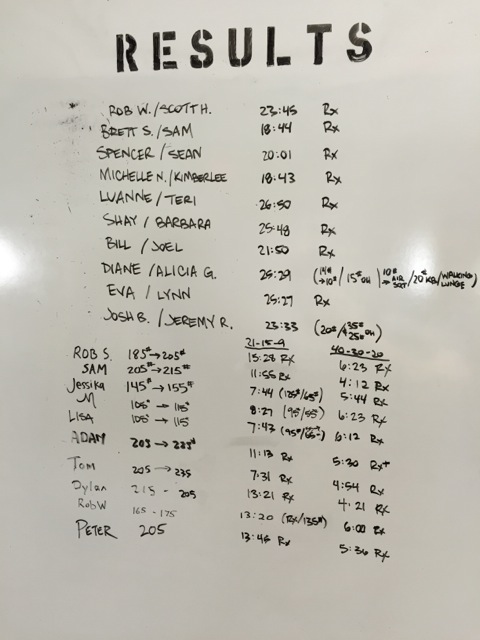 RESULTS
ROB W./SCOTT H. 23:45 Rx
BRETT S./SAM 18:44 Rx
SPENCER / SEAN 20:01 Rx
MICHELLE N./KIMBERLEE 18:43 Rx
LUANNE / TERI 26:50 Rx
SHAY / BARBARA 25:48 Rx
BILL / JOEL 21:50 Rx
DIANE/ALICIA G. 25:29 (14#→10#/15# OH | 10# → AIR SQT /20 KG/WALKING LUNGE)
EVA / LYNN 25:27 Rx
JOSH B. / JEREMY R. 23:33 (20#/35# 25# OH)
21-15-9 40-30-20
ROB S. 185#→205# 15:28 Rx 6:23 Rx
SAM 205#→215# 11:55 Rx 4:12 Rx
Jessika 145#→155# 7:44 (125#/65#) 5:44 Rx
M 105# → 115# 8:27 (95/55) 6:23 Rx
LISA 105# → 115 7:43 (95#/) 6:12 Rx
ADAM 205→225# 11:13 Rx 5:30 Rx+
Tom 205→235 7:31 Rx 4:54 Rx
Dylan 215 - 205 13:21 Rx 4:21 Rx
Rob W 165 - 175 13:20 (Rx/135#) 6:00 Rx
PETER 205 13:45 Rx 5:36 Rx